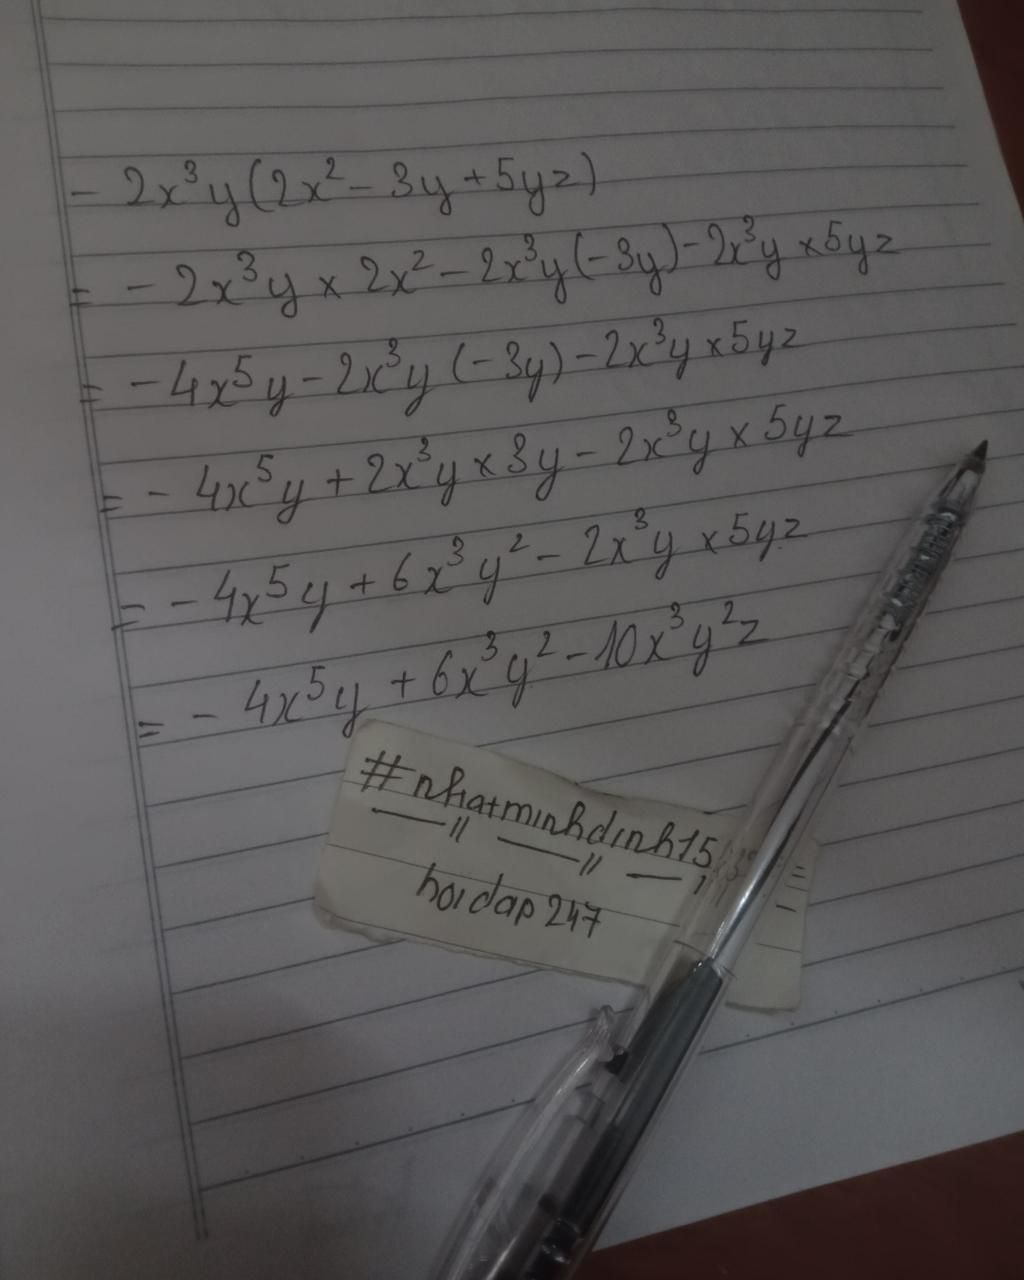 - 2x³y(2x² - 3y + 5yz)
= - 2x³y × 2x² - 2x³y(-3y) - 2x³y × 5yz
= - 4x⁵y - 2x³y (-3y) - 2x³y × 5yz
= - 4x⁵y + 2x³y × 3y - 2x³y × 5yz
= - 4x⁵y + 6x³y² - 2x³y × 5yz
= - 4x⁵y + 6x³y² - 10x³y²z
#nhatminhdinh15
hoidap247